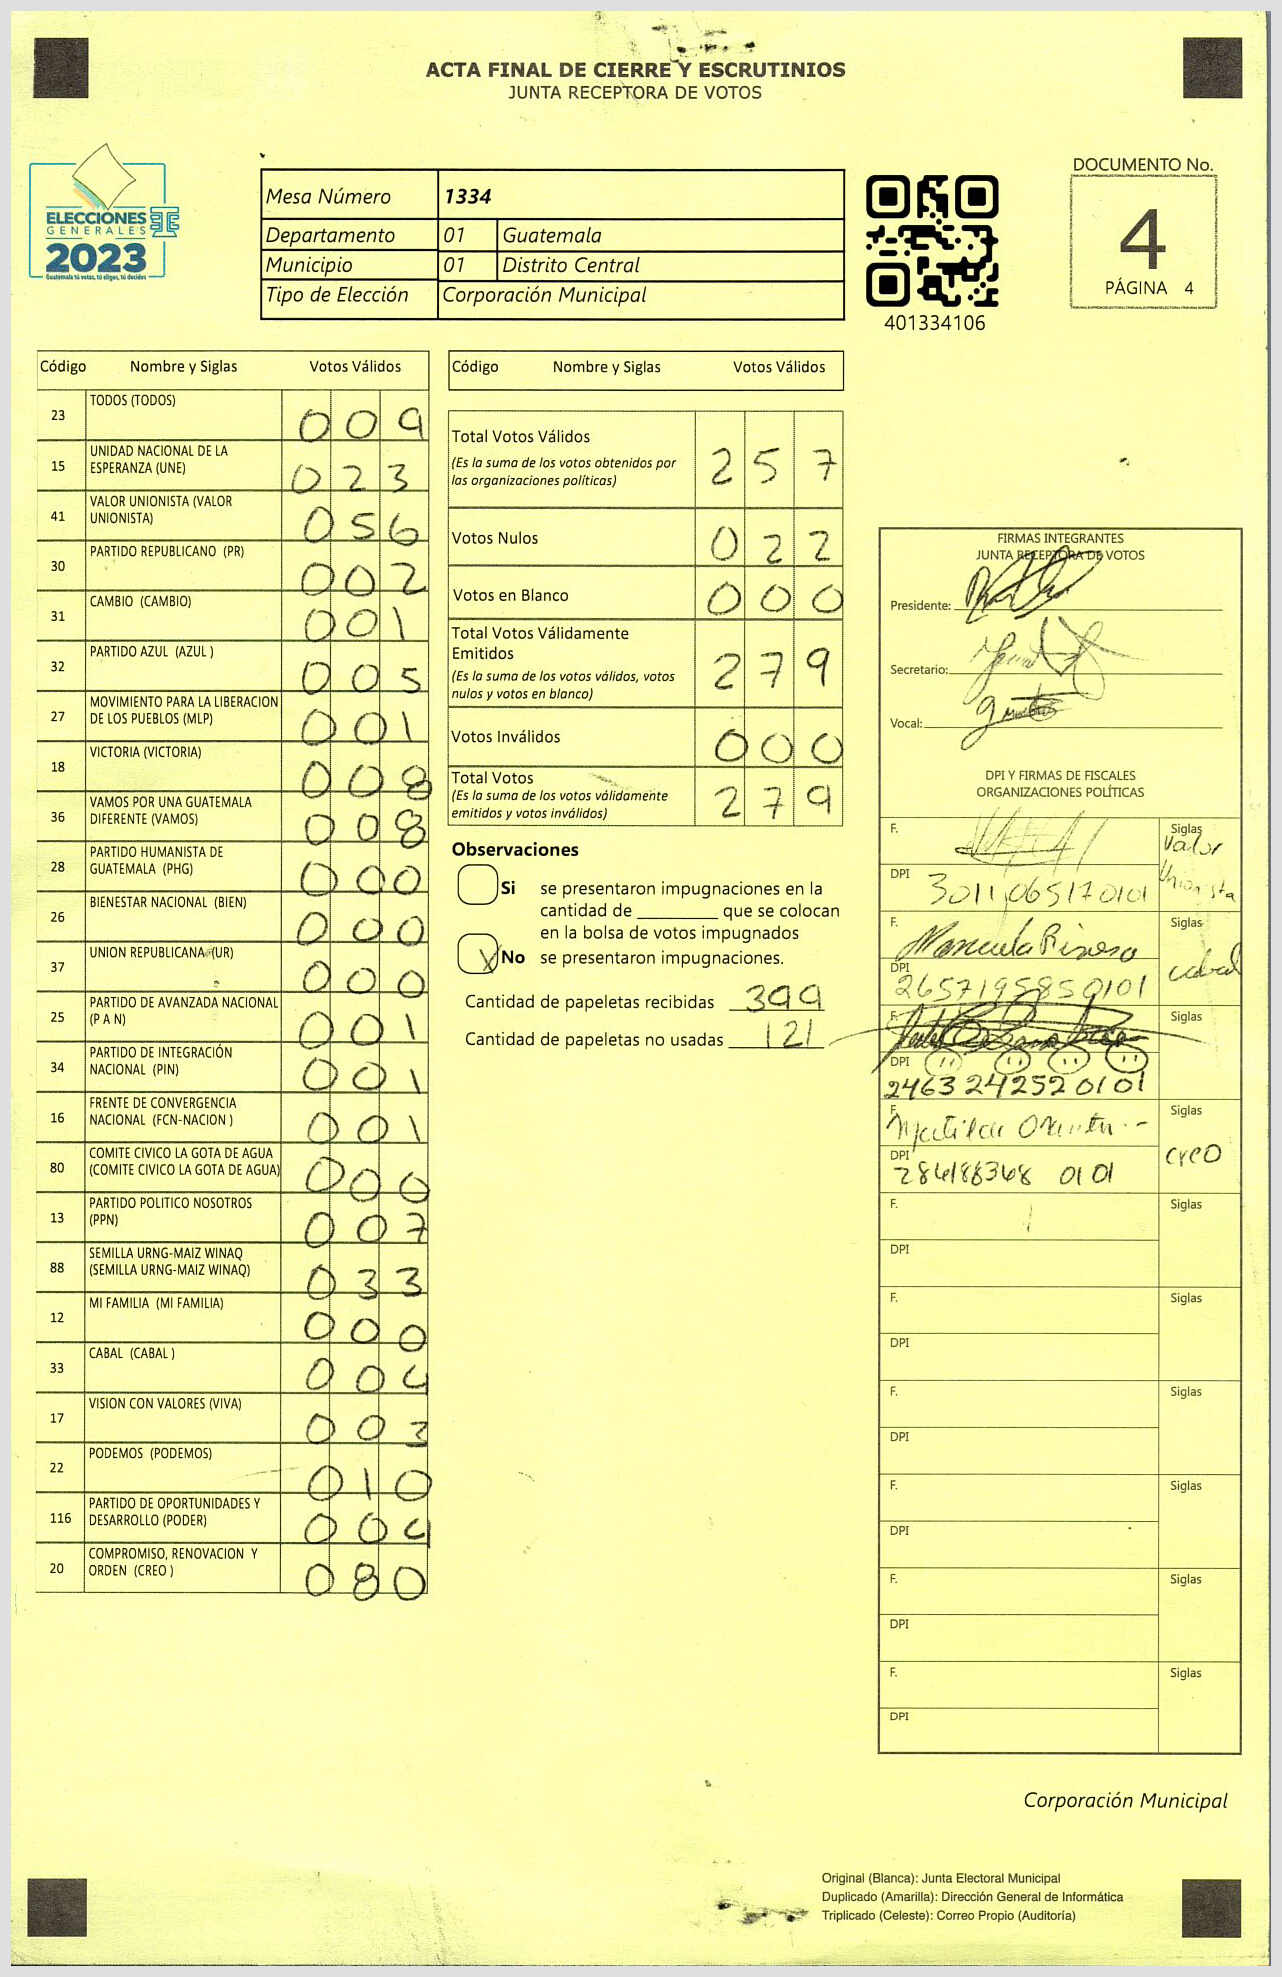 ACTA FINAL DE CIERRE Y ESCRUTINIOS
JUNTA RECEPTORA DE VOTOS
ELECCIONES
GENERALES
2023
Guatemala tú votas, tú eliges, tú decides
Mesa Número 1334
Departamento 01 Guatemala
Municipio 01 Distrito Central
Tipo de Elección Corporación Municipal
401334106
DOCUMENTO No.
4
PÁGINA 4
Código Nombre y Siglas Votos Válidos
23 TODOS (TODOS) 009
15 UNIDAD NACIONAL DE LA
ESPERANZA (UNE) 023
41 VALOR UNIONISTA (VALOR
UNIONISTA) 056
30 PARTIDO REPUBLICANO (PR) 002
31 CAMBIO (CAMBIO) 001
32 PARTIDO AZUL (AZUL ) 005
27 MOVIMIENTO PARA LA LIBERACION
DE LOS PUEBLOS (MLP) 001
18 VICTORIA (VICTORIA) 008
36 VAMOS POR UNA GUATEMALA
DIFERENTE (VAMOS) 008
28 PARTIDO HUMANISTA DE
GUATEMALA (PHG) 000
26 BIENESTAR NACIONAL (BIEN) 000
37 UNION REPUBLICANA (UR) 000
25 PARTIDO DE AVANZADA NACIONAL
(P A N) 001
34 PARTIDO DE INTEGRACIÓN
NACIONAL (PIN) 001
16 FRENTE DE CONVERGENCIA
NACIONAL (FCN-NACION ) 001
80 COMITE CIVICO LA GOTA DE AGUA
(COMITE CIVICO LA GOTA DE AGUA) 000
13 PARTIDO POLITICO NOSOTROS
(PPN) 007
88 SEMILLA URNG-MAIZ WINAQ
(SEMILLA URNG-MAIZ WINAQ) 033
12 MI FAMILIA (MI FAMILIA) 000
33 CABAL (CABAL ) 004
17 VISION CON VALORES (VIVA) 003
22 PODEMOS (PODEMOS) 010
116 PARTIDO DE OPORTUNIDADES Y
DESARROLLO (PODER) 004
20 COMPROMISO, RENOVACION Y
ORDEN (CREO ) 080
Código Nombre y Siglas Votos Válidos
Total Votos Válidos 257
(Es la suma de los votos obtenidos por
las organizaciones políticas)
Votos Nulos 022
Votos en Blanco 000
Total Votos Válidamente
Emitidos 279
(Es la suma de los votos válidos, votos
nulos y votos en blanco)
Votos Inválidos 000
Total Votos 279
(Es la suma de los votos válidamente
emitidos y votos inválidos)
Observaciones
Si se presentaron impugnaciones en la
cantidad de ________ que se colocan
en la bolsa de votos impugnados
X No se presentaron impugnaciones.
Cantidad de papeletas recibidas 399
Cantidad de papeletas no usadas 121
FIRMAS INTEGRANTES
JUNTA RECEPTORA DE VOTOS
Presidente:
Secretario:
Vocal:
DPI Y FIRMAS DE FISCALES
ORGANIZACIONES POLÍTICAS
F. Siglas
Valor
Unionista
DPI 3011065170101
F. Manuela Siglas
cabal
DPI 2657195850101
F. Siglas
DPI
2463 24252 0101
F. Matilde Siglas
creo
DPI
F. Siglas
DPI
F. Siglas
DPI
F. Siglas
DPI
F. Siglas
DPI
F. Siglas
DPI
F. Siglas
DPI
Corporación Municipal
Original (Blanca): Junta Electoral Municipal
Duplicado (Amarilla): Dirección General de Informática
Triplicado (Celeste): Correo Propio (Auditoría)